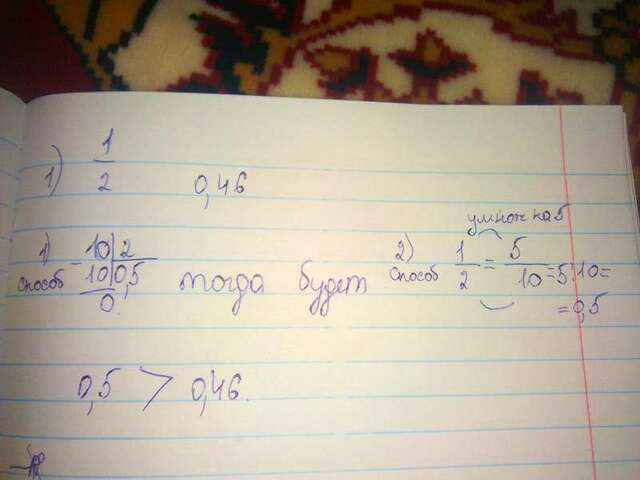 1) 1/2 0,46
умнож на 5
1) способ 10 | 2
- 10 | 0,5
0
тогда будет
2) способ 1/2 = 5/10 = 5:10 =
= 0,5
0,5 > 0,46.